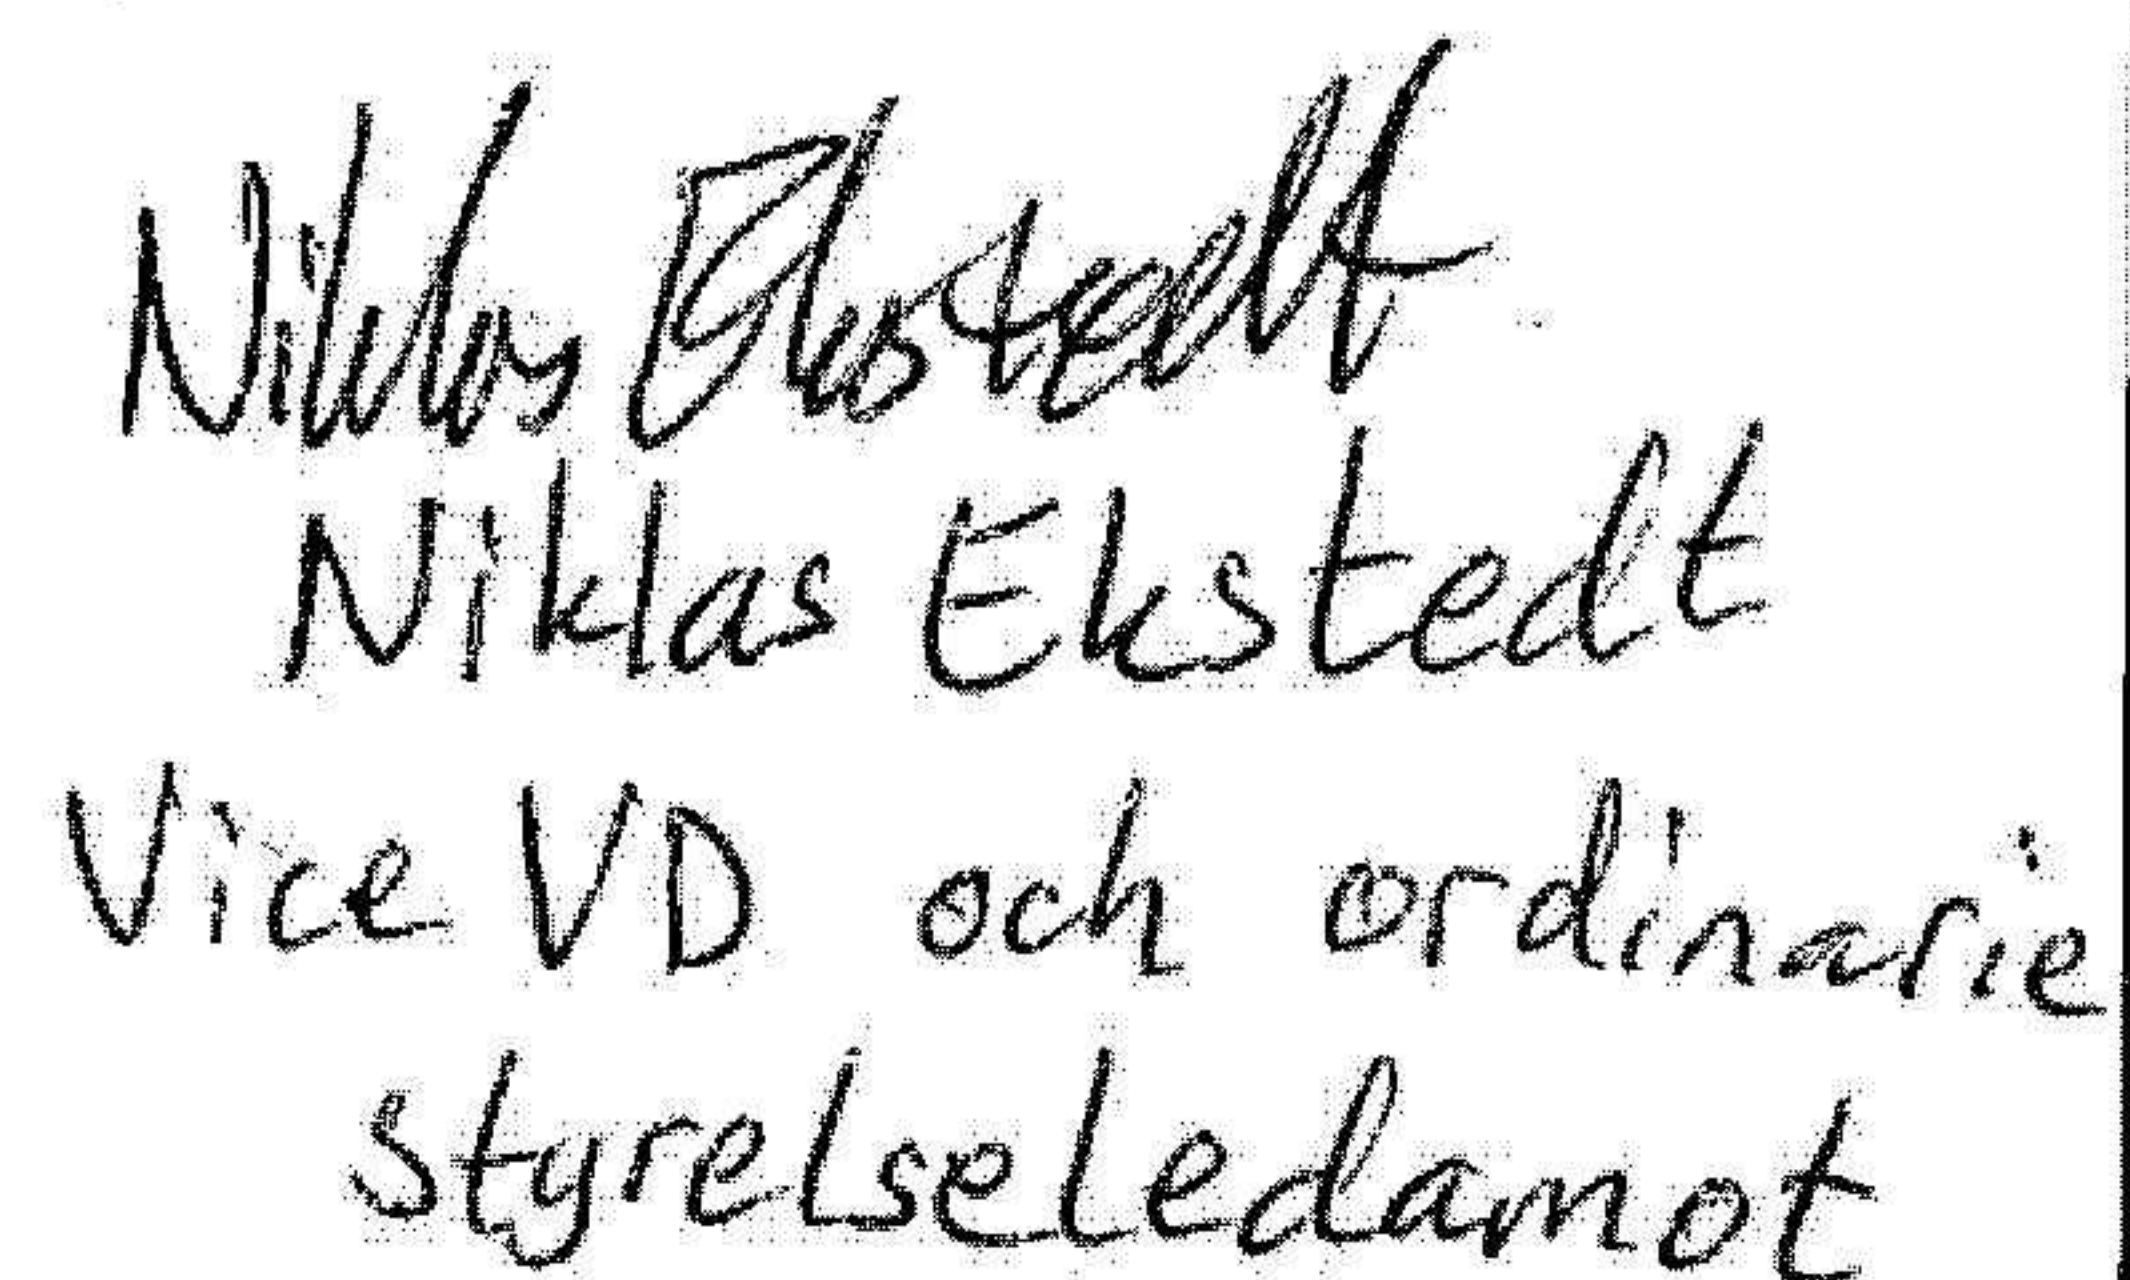 Niklas Ekstedt
Niklas Ekstedt
Vice VD och ordinarie
styrelseledamot